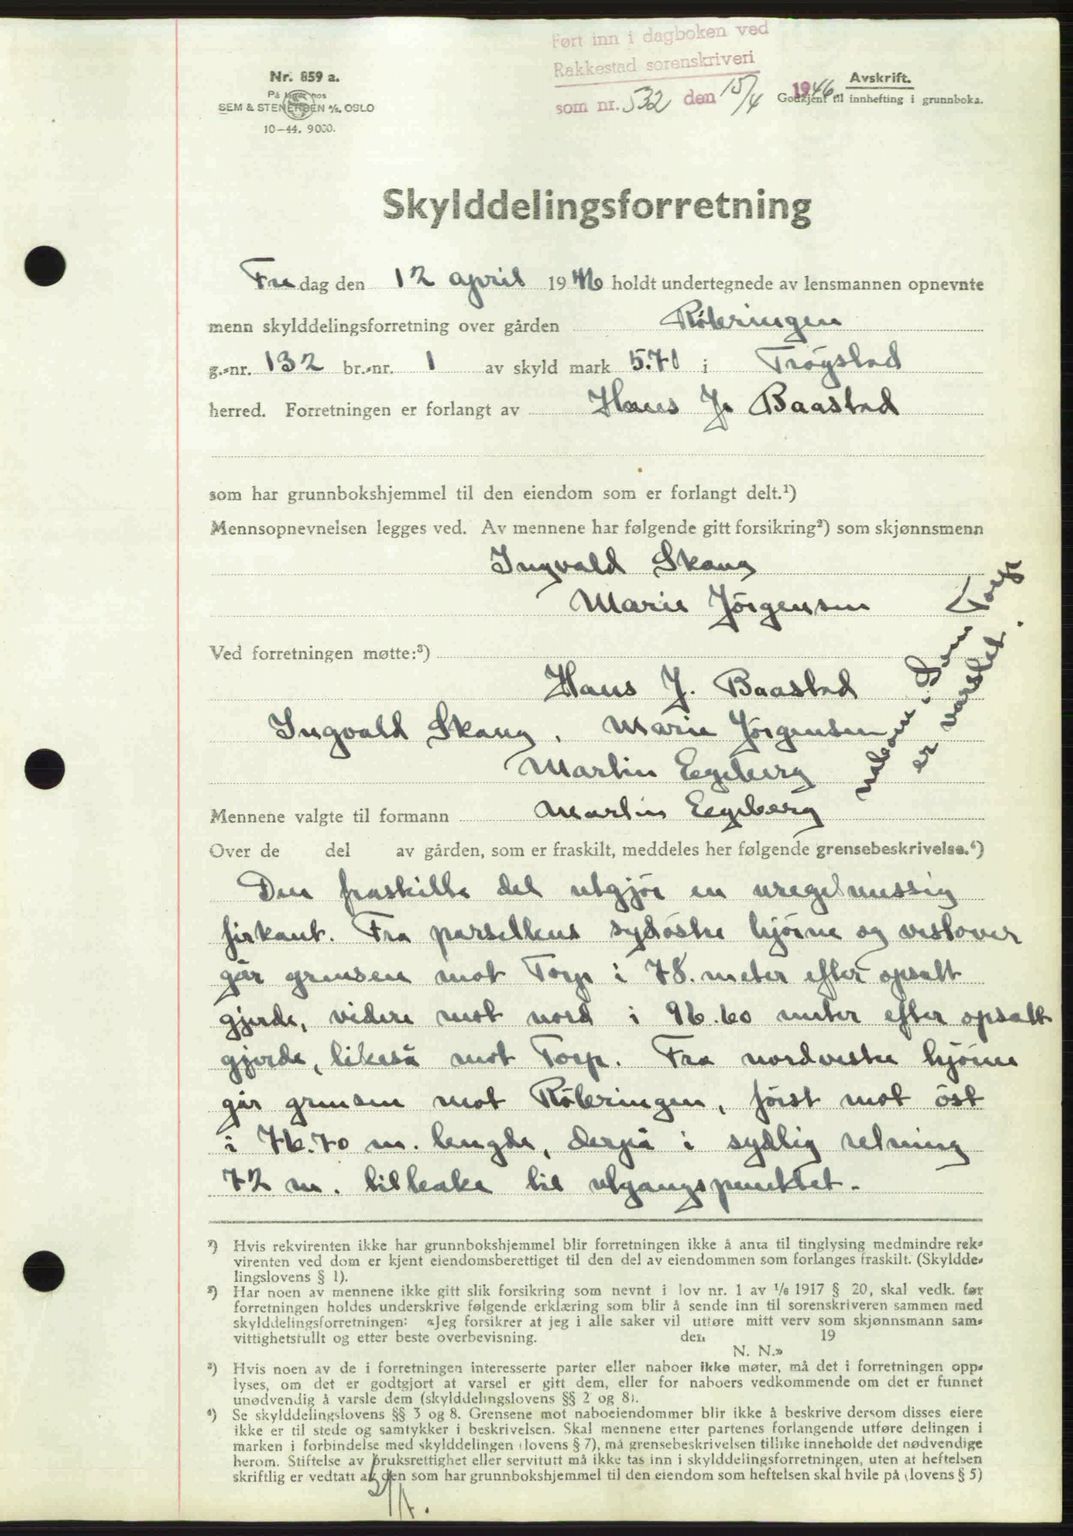 Ført inn i dagboken ved
Rakkestad sorenskriveri
som nr. 532 den 15/4 1946
Nr. 859 a.
På lager hos
SEM & STENERSEN A/S, OSLO
10-44. 9000.
Avskrift.
Godkjent til innhefting i grunnboka.
Skylddelingsforretning
Fre dag den 12 april 1946 holdt undertegnede av lensmannen opnevnte
menn skylddelingsforretning over gården Röleringen
g.-nr. 132 br.-nr. 1 av skyld mark 5.71 i Trøgstad
herred. Forretningen er forlangt av Hans J. Baastad
som har grunnbokshjemmel til den eiendom som er forlangt delt.¹)
Mennsopnevnelsen legges ved. Av mennene har følgende gitt forsikring²) som skjønnsmenn
Ingvald Skaug
Marie Jörgensen
Ved forretningen møtte:³)
Hans J. Baastad
Ingvald Skaug, Marie Jörgensen
Martin Eegeberg
naboen i Torp
er varslet.
Mennene valgte til formann Martin Eegeberg
Over de del av gården, som er fraskilt, meddeles her følgende grensebeskrivelse.⁴)
Den fraskilte del utgjör en uregelmessig
firkant. Fra parsellens sydöstre hjörne og vestover
går grensen mot Torp i 78. meter efter opsatt
gjerde, videre mot nord i 96.60 meter efter opsatt
gjerde, likeså mot Torp. Fra nordvestre hjörne
går grensen mot Röleringen, först mot öst
i 76.70 m. lengde, derpå i sydlig retning
72 m. tilbake til utgangspunktet.
¹) Hvis rekvirenten ikke har grunnbokshjemmel blir forretningen ikke å anta til tinglysing medmindre rek-
virenten ved dom er kjent eiendomsberettiget til den del av eiendommen som forlanges fraskilt. (Skyldde-
lingslovens § 1).
²) Har noen av mennene ikke gitt slik forsikring som nevnt i lov nr. 1 av 1/6 1917 § 20, skal vedk. før
forretningen holdes underskrive følgende erklæring som blir å sende inn til sorenskriveren sammen med
skylddelingsforretningen: «Jeg forsikrer at jeg i alle saker vil utføre mitt verv som skjønnsmann sam-
vittighetsfullt og etter beste overbevisning. den 19
N. N.»
³) Hvis noen av de i forretningen interesserte parter eller naboer ikke møter, må det i forretningen opp-
lyses, om det er godtgjort at varsel er gitt dem, eller for naboers vedkommende om det er funnet
unødvendig å varsle dem (skylddelingslovens §§ 2 og 8).
⁴) Se skylddelingslovens §§ 3 og 8. Grensene mot naboeiendommer blir ikke å beskrive dersom disses eiere
ikke er til stede og samtykker i beskrivelsen. Skal mennene etter partenes forlangende utføre delingen i
marken i forbindelse med skylddelingen (lovens § 7), må grensebeskrivelsen tillike inneholde det nødvendige
herom. Stiftelse av bruksrettighet eller servitutt må ikke tas inn i skylddelingsforretningen, uten at heftelsen
skriftlig er vedtatt av den som har grunnbokshjemmel til den eiendom som heftelsen skal hvile på (lovens § 5)